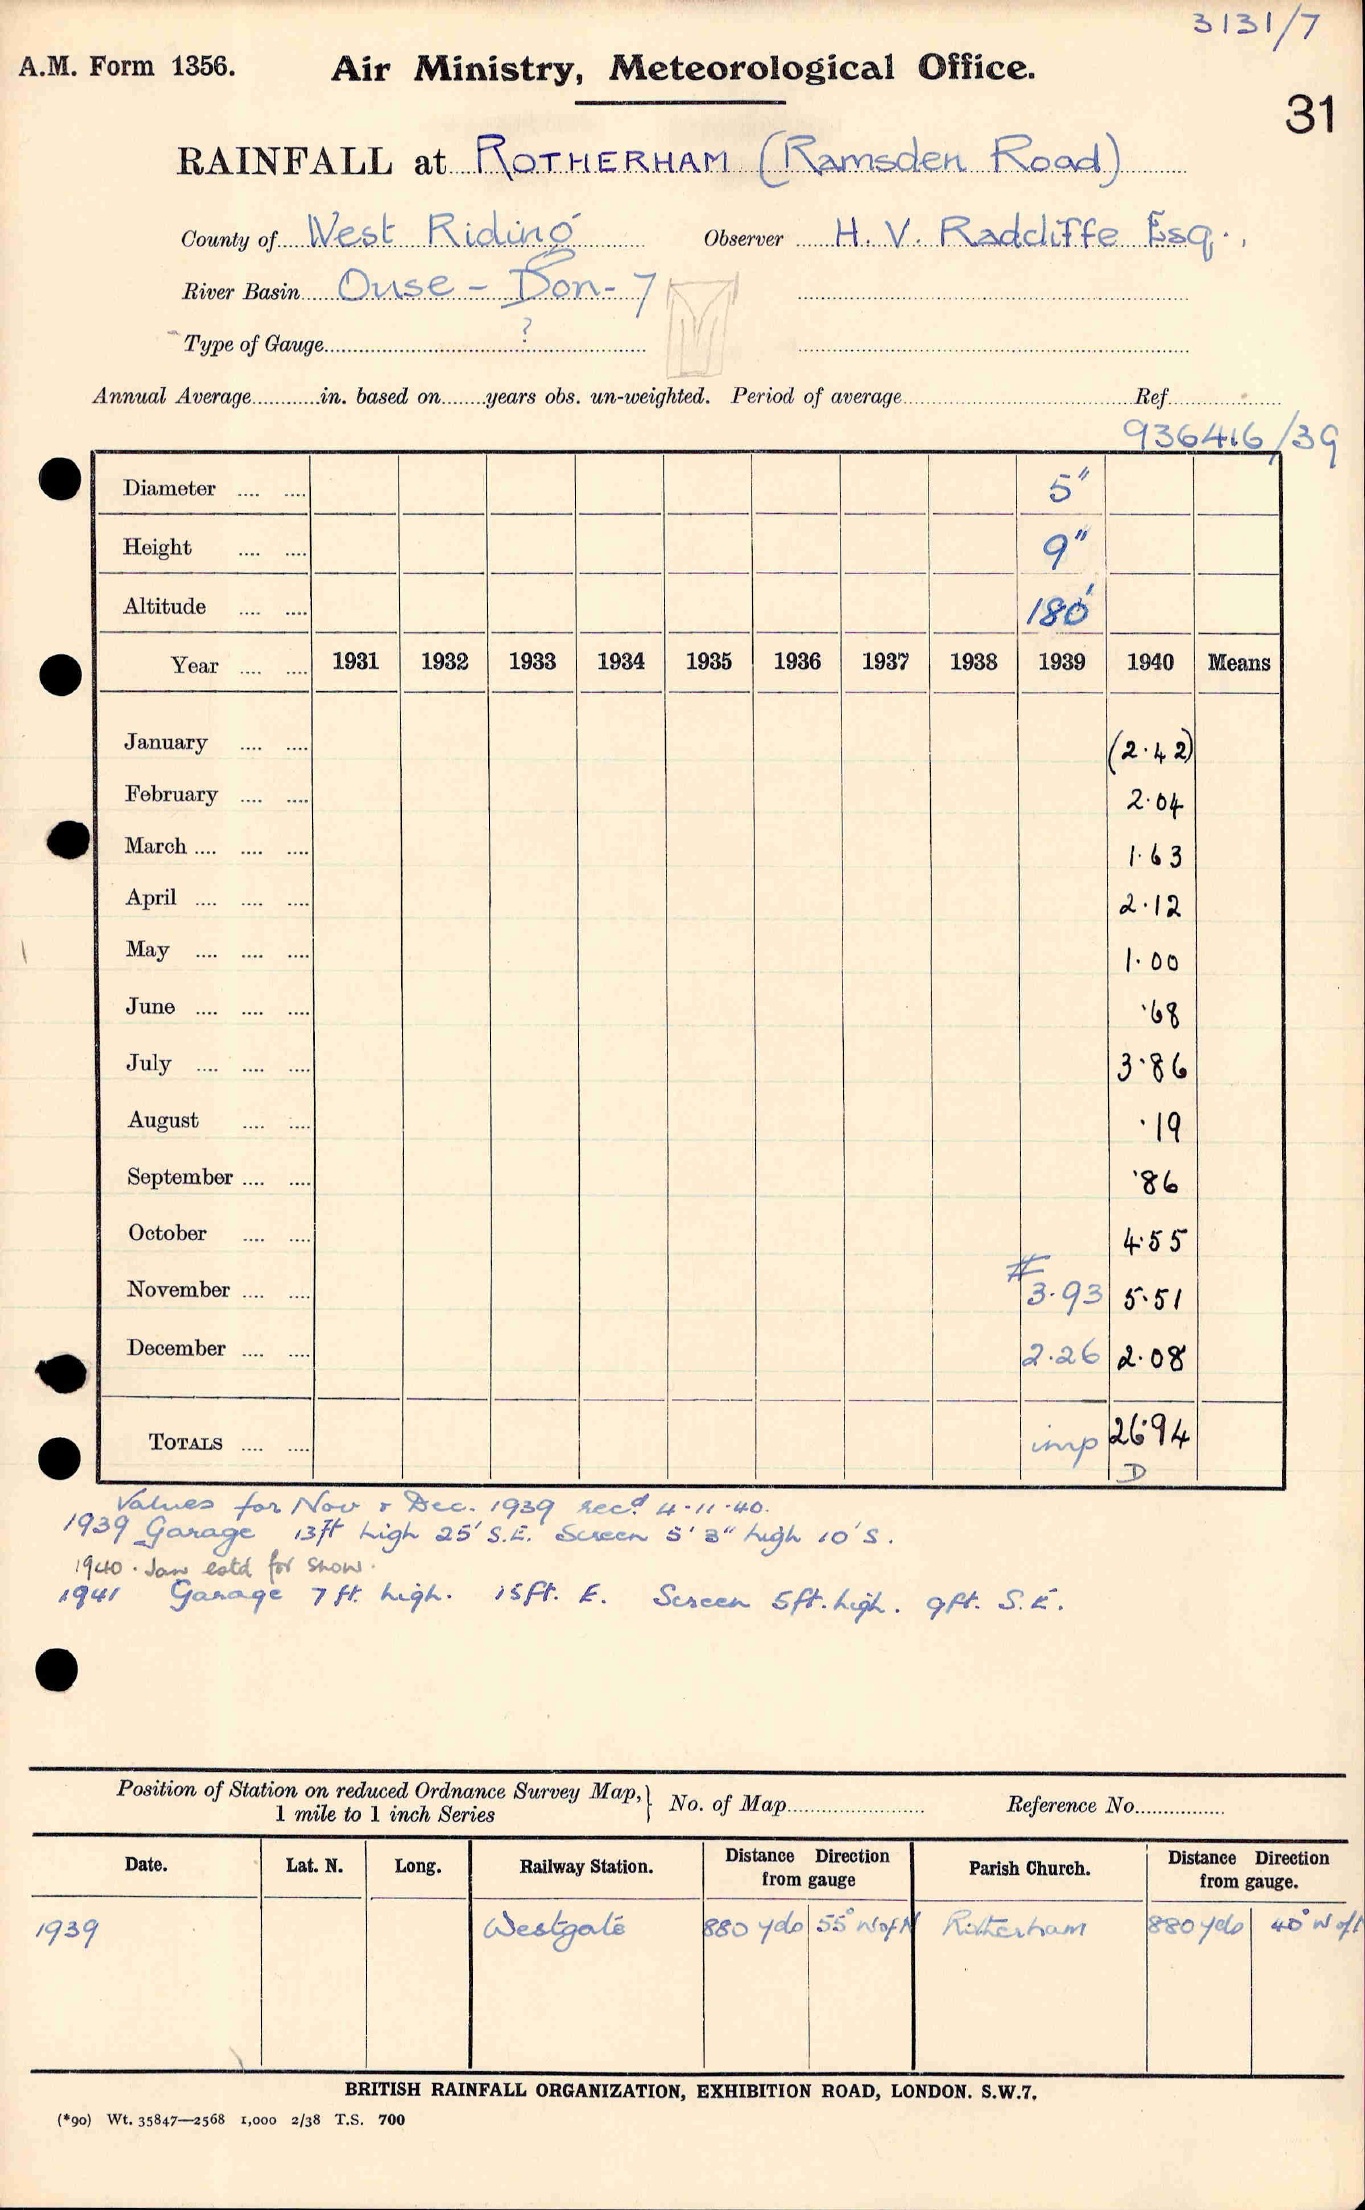 3131/7
A.M. Form 1356. Air Ministry, Meteorological Office.
31
RAINFALL at ROTHERHAM (Ramsden Road)
County of West Riding Observer H. V. Radcliffe Esq.,
River Basin Ouse - Don - 7
Type of Gauge ?
Annual Average in. based on years obs. un-weighted. Period of average Ref
936416/39
Diameter 5"
Height 9"
Altitude 180'
Year 1931 1932 1933 1934 1935 1936 1937 1938 1939 1940 Means
January (2.42)
February 2.04
March 1.63
April 2.12
May 1.00
June .68
July 3.86
August .19
September .86
October 4.55
November # 3.93 5.51
December 2.26 2.08
TOTALS imp 26.94
D
Values for Nov & Dec. 1939 recd 4.11.40.
1939 Garage 13ft high 25' S.E. Screen 5' 3" high 10' S.
1940. Jan estd for snow.
1941 Garage 7 ft. high. 15ft. E. Screen 5ft. high. 9ft. S.E.
Position of Station on reduced Ordnance Survey Map, 1 mile to 1 inch Series } No. of Map Reference No.
Date. Lat. N. Long. Railway Station. Distance Direction from gauge Parish Church. Distance Direction from gauge.
1939 Westgate 880 yds 55° W of N Rotherham 880 yds 40° W of N
BRITISH RAINFALL ORGANIZATION, EXHIBITION ROAD, LONDON. S.W.7.
(*90) Wt. 35847—2568 1,000 2/38 T.S. 700